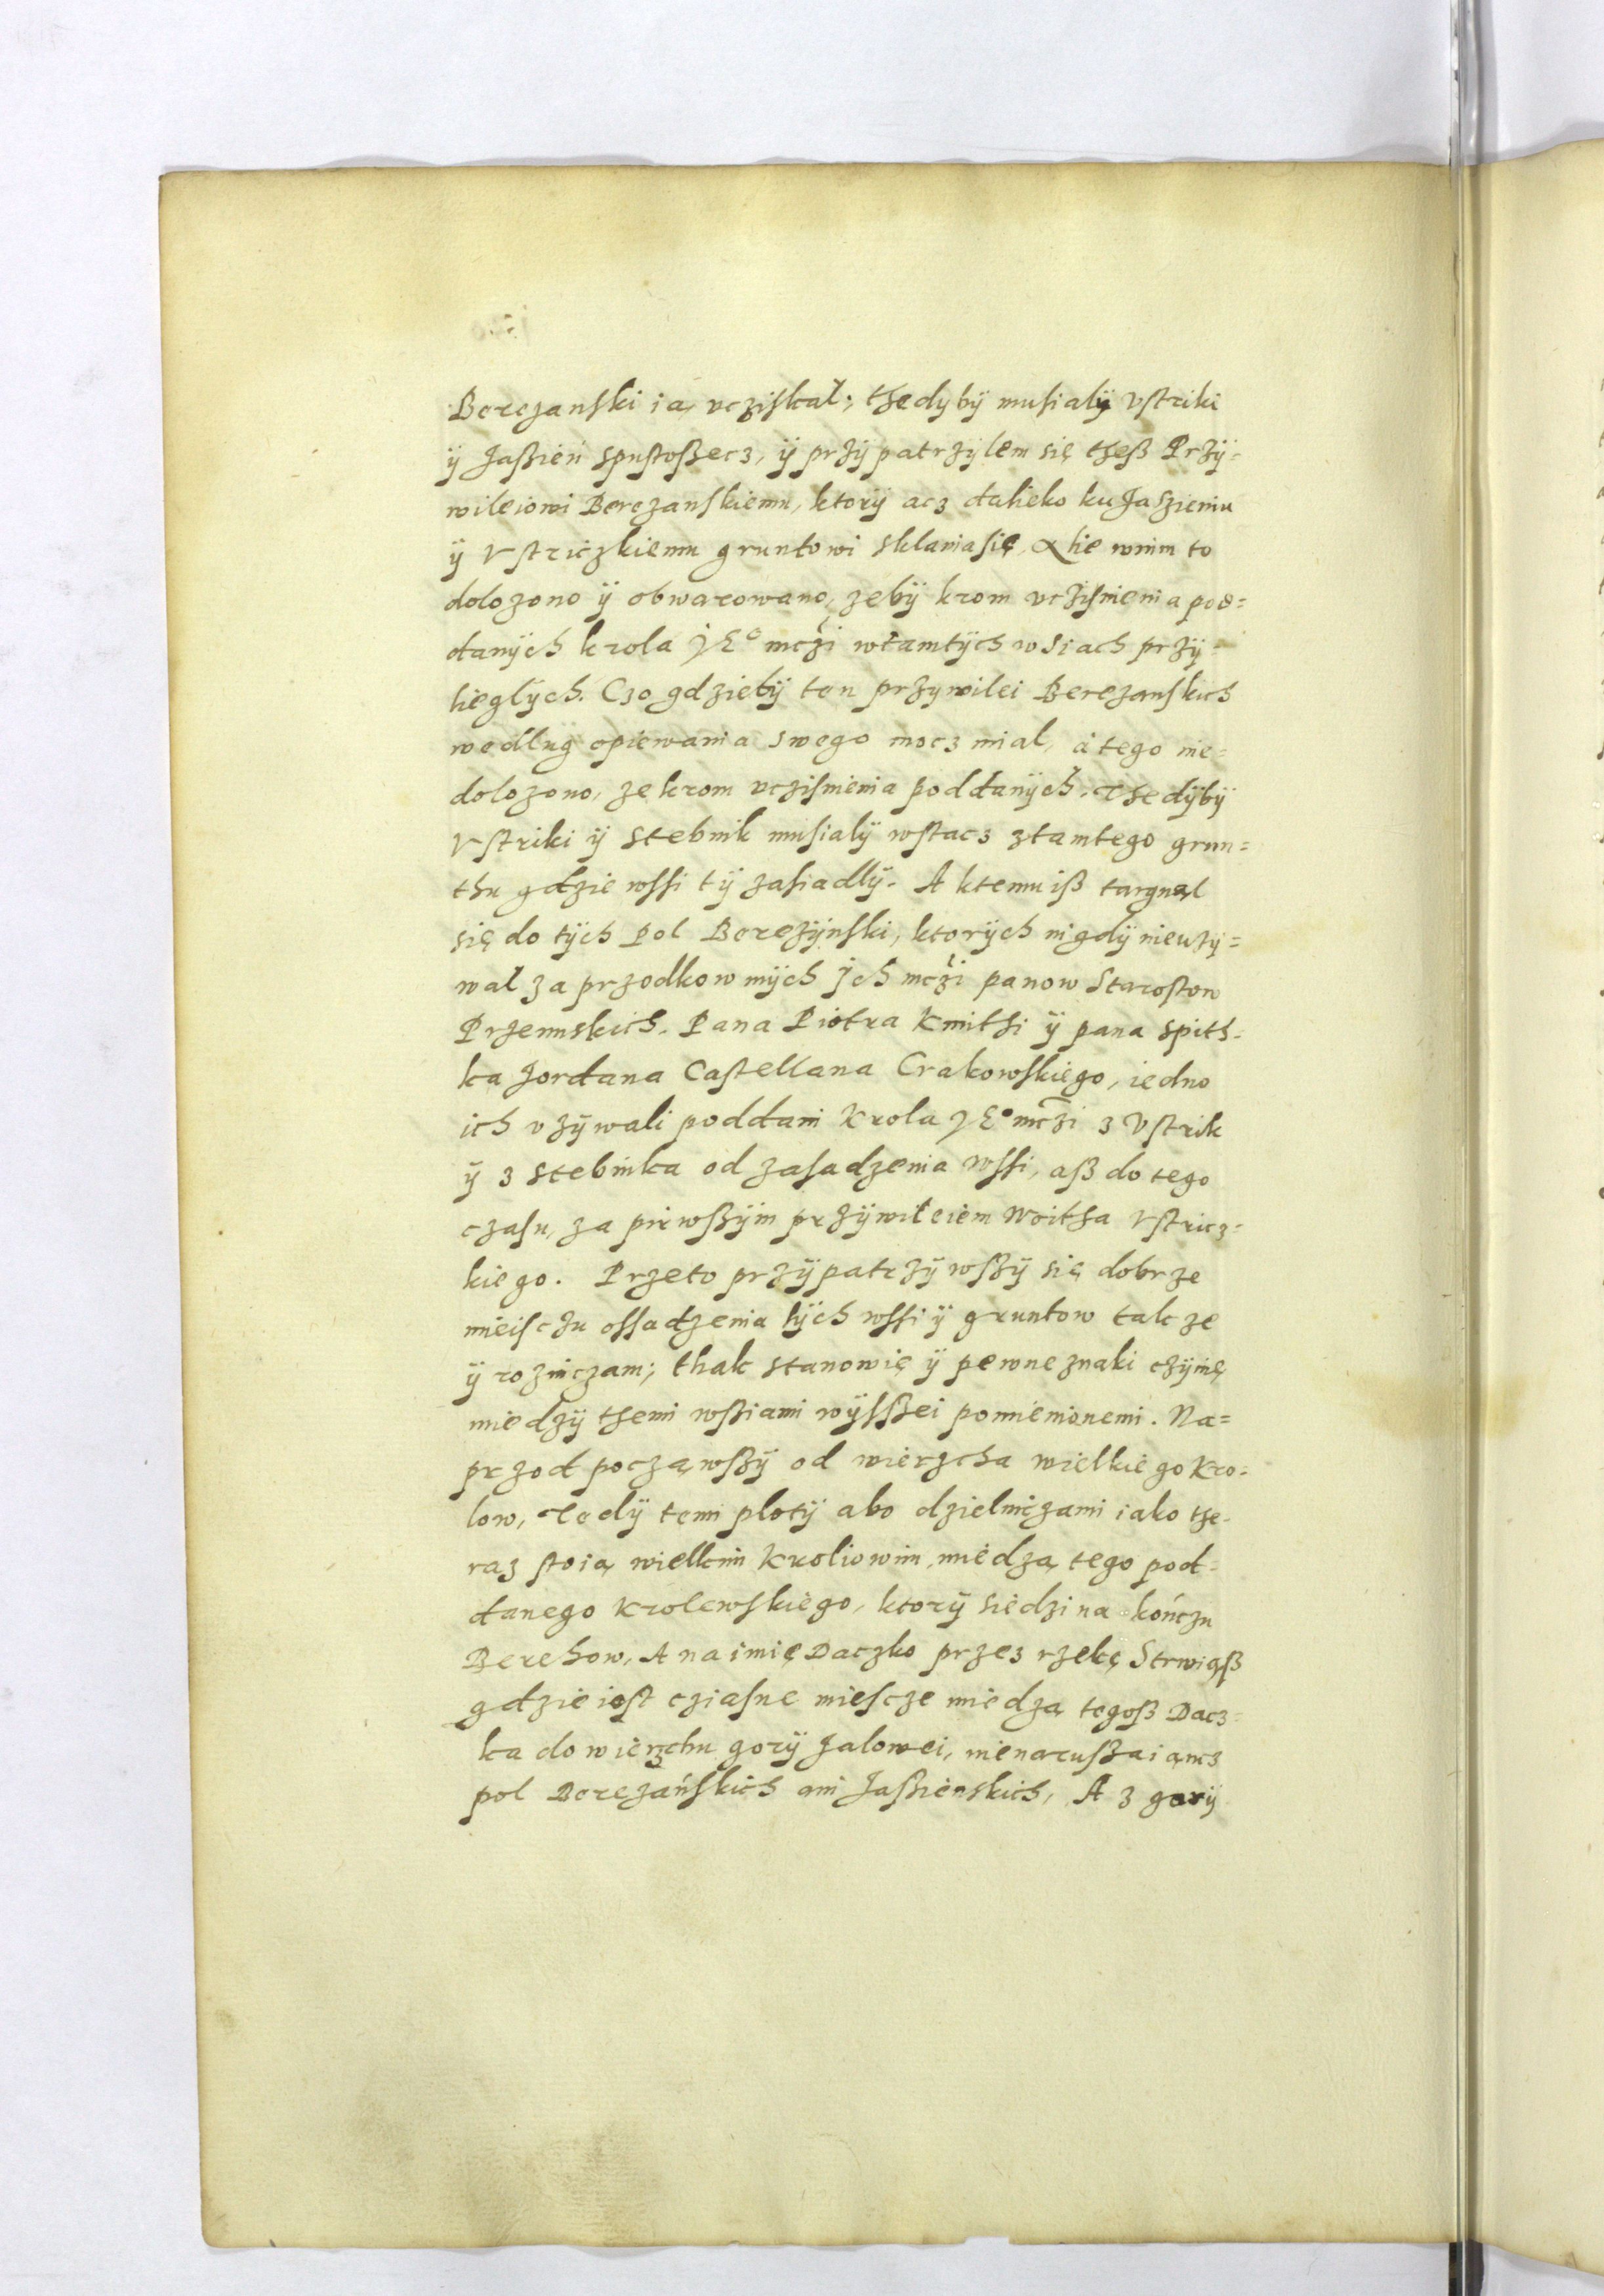 Berezanski ią ucziskał; thedyby musialÿ Vstriki
ÿ Jaßień spustoßecz, ÿ przÿpatrzÿlem się theß Przÿ=
wileiowi Berezanskiemu, ktorÿ acz dalieko ku Jaszieniu
ÿ Vstriczkiemu gruntowi sklania się, Alie wnim to
dolozono ÿ obwarowano, zebÿ krom ucziśnienia pod=
danÿch krola JE° mczi wtamtÿch wsiach przÿ=
lieglÿch. Czo gdziebÿ ten przywilei Berezanskich
wedlug opiewania swego mocz mial, á tego nie=
dolozono, ze krom ucziśnienia poddanÿch. Thedÿbÿ
Vstriki ÿ Stebnik musialÿ wstacz ztamtego grun=
thu gdzie wssi tÿ zasiadlÿ. A ktemu iß targnąl
się do tÿch pol Berezÿnski, ktorÿch nigdÿ nieuzÿ=
wal za przodkow mÿch Jch mczi panow Starostow
Przemskich. Pana Piotra Kmithi ÿ pana Spith=
ka Jordana Castellana Crakowskiego, iedno
ich uzÿwali poddani Krola JE° mczi z Vstrik
ÿ z Stebnika od zasadzenia wssi, aß do tego
czasu, za pirwszÿm przÿwileiem Woitha Vstricz=
kiego. Przeto przÿpatrzÿwszÿ się dobrze
mieisczu ossadzenia tÿch wssi ÿ gruntow takze
ÿ rozniczam; thak stanowię ÿ pewne znaki czÿnię
miedzÿ themi wßiami wÿssßei pomienionemi. Na=
przod począwßÿ od wierzcha wielkiego Kro=
low, Tedÿ temi plotÿ abo dzielniczami iako the=
raz stoią wielkim Kroliowim miedzą tego pod=
danego Krolewskiego, ktorÿ siedzi na kończu
Berehow, A na imię Daczko przez rzekę Strwiąß
gdzie iest cziasne miescze miedzą tegoß Dacz=
ka do wierzchu gorÿ Jalowei, nienarußaiącz
pol Berezańskich ani Jaßienskich, A z gorÿ